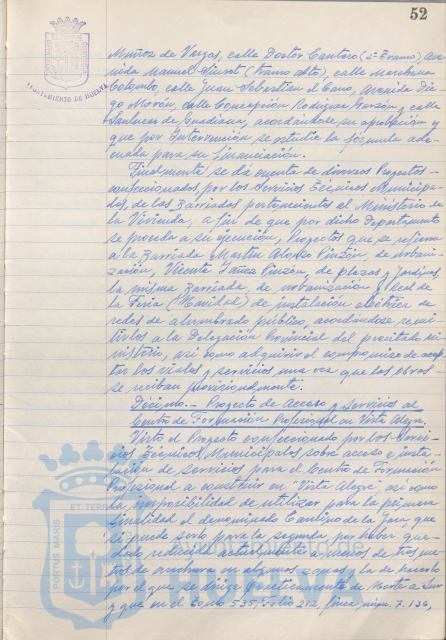 52
AYUNTAMIENTO DE HUELVA
Muñoz de Vargas, calle Doctor Cantero (2º Tramo), Ave-
nida Manuel Siurot (tramo alto), calle Marchena
Colombo, calle Juan Sebastián el Cano, Avenida Die-
go Morón, calle Concepción Rodríguez Garzón y calle
Sanlúcar de Guadiana, acordándose su aprobación y
que por Intervención se estudie la fórmula ade-
cuada para su financiación.
Finalmente se da cuenta de diversos Proyectos
confeccionados por los Servicios Técnicos Municipa-
les, de las Barriadas pertenecientes al Ministerio de
la Vivienda, a fin de que por dicho Departamento
se proceda a su ejecución, Proyectos que se refieren
a la Barriada Martín Alonso Pinzón, de urbani-
zación, Vicente Yañez Pinzón, de plazas y jardines
la misma Barriada, de urbanización y local de
la Feria (Navidad) de instalación eléctrica de
redes de alumbrado público, acordándose remi-
tirlos a la Delegación Provincial del precitado mi-
nisterio, así como adquirir el compromiso de acep-
tar los viales y servicios una vez que las obras
se reciban provisionalmente.
Décimo.- Proyecto de Acceso y Servicios al
Centro de Formación Profesional en Vista Alegre
Visto el Proyecto confeccionado por los Servi-
cios Técnicos Municipales sobre acceso e insta-
lación de servicios para el Centro de Formación
Profesional a construir en "Vista Alegre" así como
la imposibilidad de utilizar para la primera
finalidad el denominado Camino de la Joya, que
si puede serlo para la segunda, por haber que-
dado reducido actualmente a menos de tres me-
tros de anchura en algunas zonas y la de hacerlo
por el que se dirige prácticamente de Norte a Sur
y que en el Tomo 535, Folio 212, finca núm. 7.136,
PORTUS MARIS ET TERRAE
HUELVA